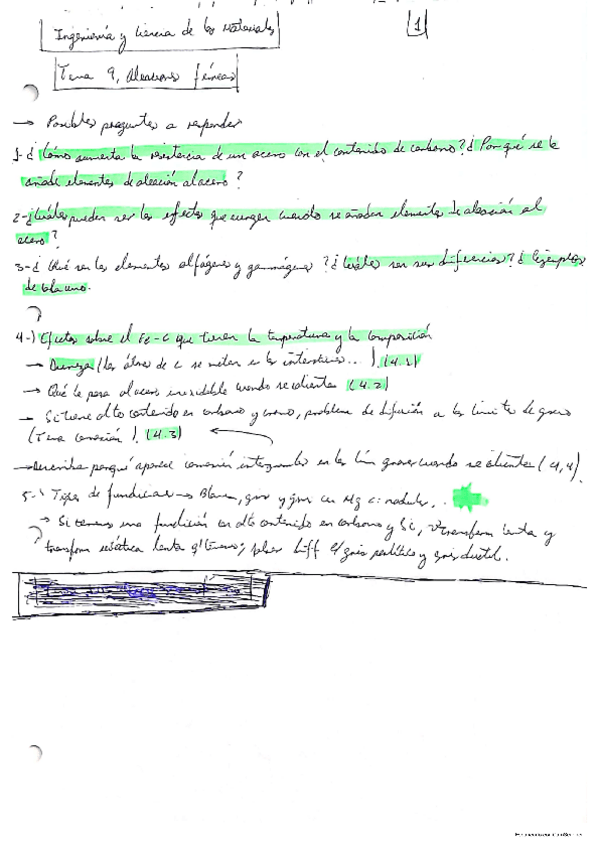 Ingeniería y Ciencia de los Materiales
[1]
Tema 9, Aleaciones férreas
→ Posibles preguntas a responder
1-¿ Cómo aumenta la resistencia de un acero con el contenido de carbono? ¿ Por qué se le
añade elementos de aleación al acero ?
2-¿Cuáles pueden ser los efectos que surgen cuando se añaden elementos de aleación al
acero ?
3-¿ Qué son los elementos alfágenos y gammágenos ? ¿Cuáles son sus diferencias? ¿ Ejemplos
de cada uno.
4-) Efectos sobre el Fe-C que tienen la temperatura y la composición
→ Dureza (los átomos de C se meten en los intersticios... ) (4.1)
→ Qué le pasa al acero inoxidable cuando se calienta (4.2)
→ Si tiene alto contenido en carbono y cromo, problema de difusión a los límites de grano
(Tema corrosión). (4.3)
→ describa porqué aparece corrosión intergranular en los lím grano cuando se calienta (4,4).
5-) Tipos de fundiciones → Blanca, gris y gris con Mg o nodular.
→ Si tenemos una fundición con alto contenido en carbono y Si, transform lenta y
transform lenta y diff gris perlítico y gris dúctil.